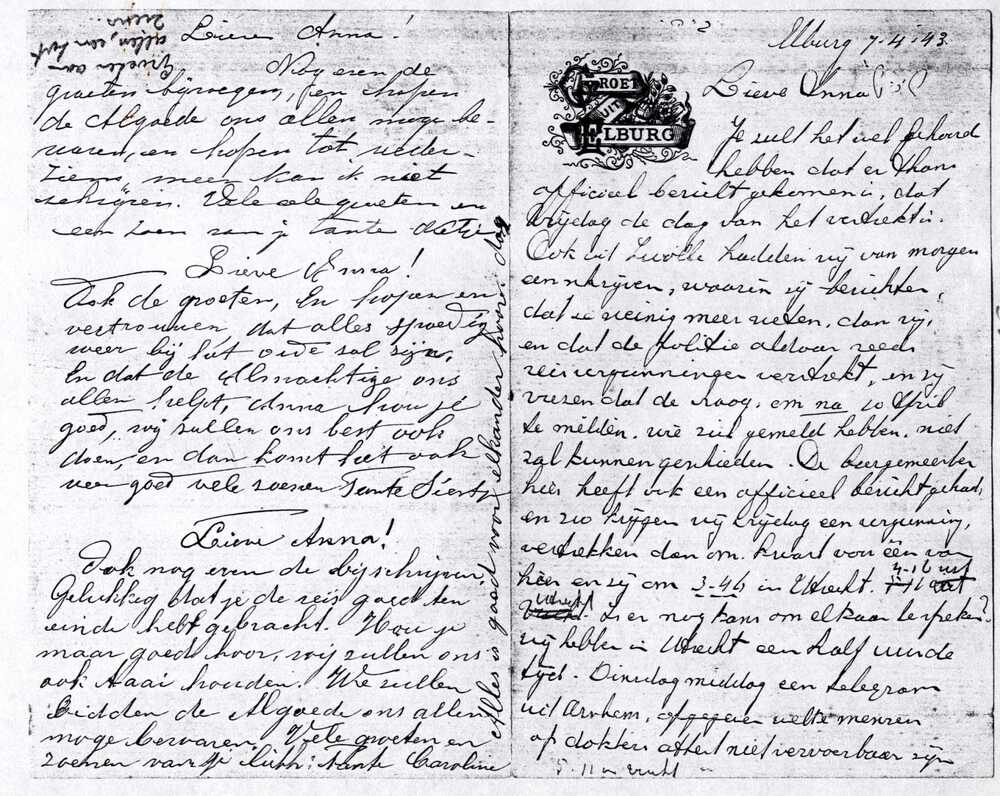 Elburg 7-4-43.
GROET
UIT
ELBURG
Lieve Anna
Je zult het wel gehoord
hebben dat er thans
officieel bericht gekomen is, dat
Vrijdag de dag van het vertrek is.
Ook uit Zwolle hadden wij van morgen
een schrijven, waarin zij berichten,
dat ze weinig meer weten, dan wij,
en dat de politie aldaar reeds
reisvergunningen verstrekt, en zij
vrezen dat de vraag, om na 10 April
te melden, wie ziek gemeld hebben, niet
zal kunnen geschieden. De burgemeester
hier heeft ook een officieel bericht gehad,
en zoo krijgen wij Vrijdag een vergunning,
vertrekken dan om kwart voor één van
hier en zij om 3-46 in Utrecht. 4-16 uit
Utrecht. Is er nog kans om elkaar te spreken?
wij hebben in Utrecht een half uurde
tijd. Dinsdag middag een telegram
uit Arnhem, opgegeven welke menschen
op dokters attest niet vervoerbaar zijn
Lieve Anna!
Nog even de
groeten bijvoegen, en hopen
de Algoede ons allen moge be-
waren, en hopen tot weder-
ziens, meer kan ik niet
schrijven. Vele vele groeten en
een zoen van je tante
Lieve Anna!
Ook de groeten, En hopen en
vertrouwen dat alles spoedig
weer bij het oude zal zijn.
En dat de Almachtige ons
allen helpt, Anna hou je
goed, wij zullen ons best ook
doen, en dan komt het ook
weer goed vele zoenen Tante Sientje
Lieve Anna!
Ook nog even de bijschrijven,
Gelukkig dat je de reis goed ten
einde hebt gebracht. Hou je
maar goed hoor, wij zullen ons
ook taai houden. We zullen
bidden de Algoede ons allen
moge bewaren. Vele groeten en
zoenen van je liefh: Tante Caroline
Alles is goed voor elkander hoor! dag
Groeten aan
allen, een